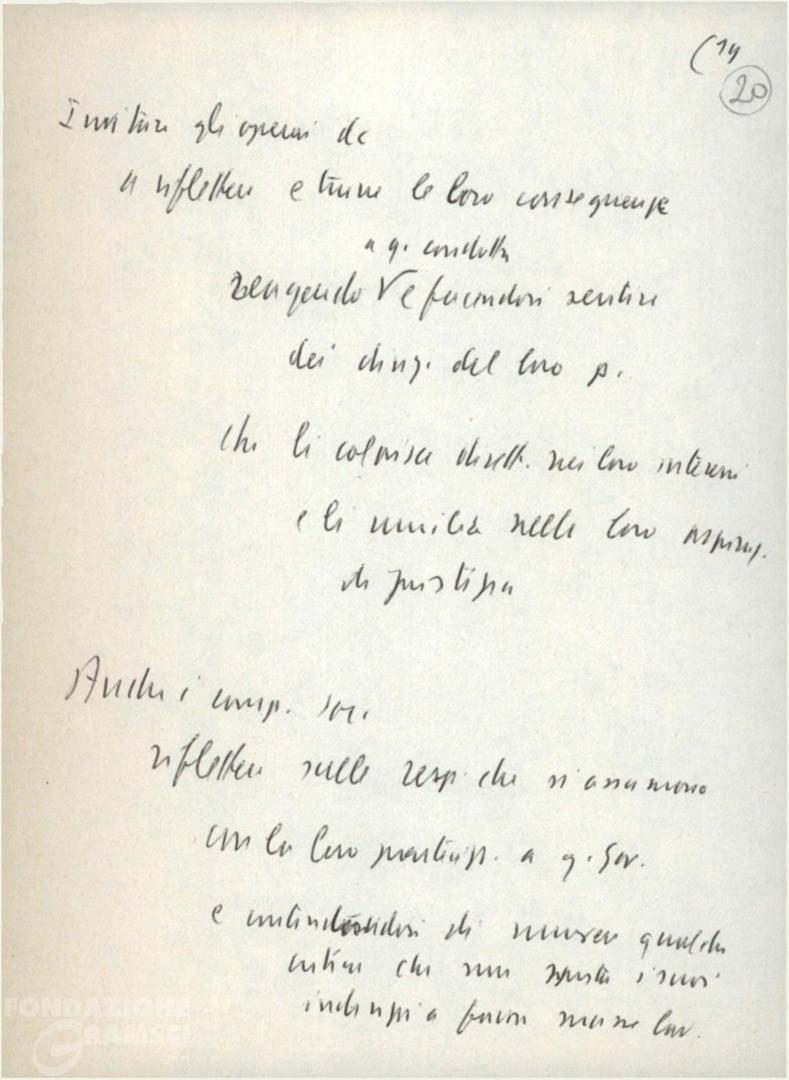 (14
20
Invitare gli operai dc
a riflettere e trarne le loro conseguenze
a q. condotta
reagendo V e facendosi sentire
dei dirig. del loro p.
che li colpisce dirett. nei loro interessi
e li umilia nelle loro aspiraz.
di giustizia
Anche i comp. soc.
riflettere sulle resp. che si assumono
con la loro partecip. a q. Gov.
e di muovere qualche
critica che non sposta i suoi
indirizzi a favore masse lav.
FONDAZIONE
GRAMSCI